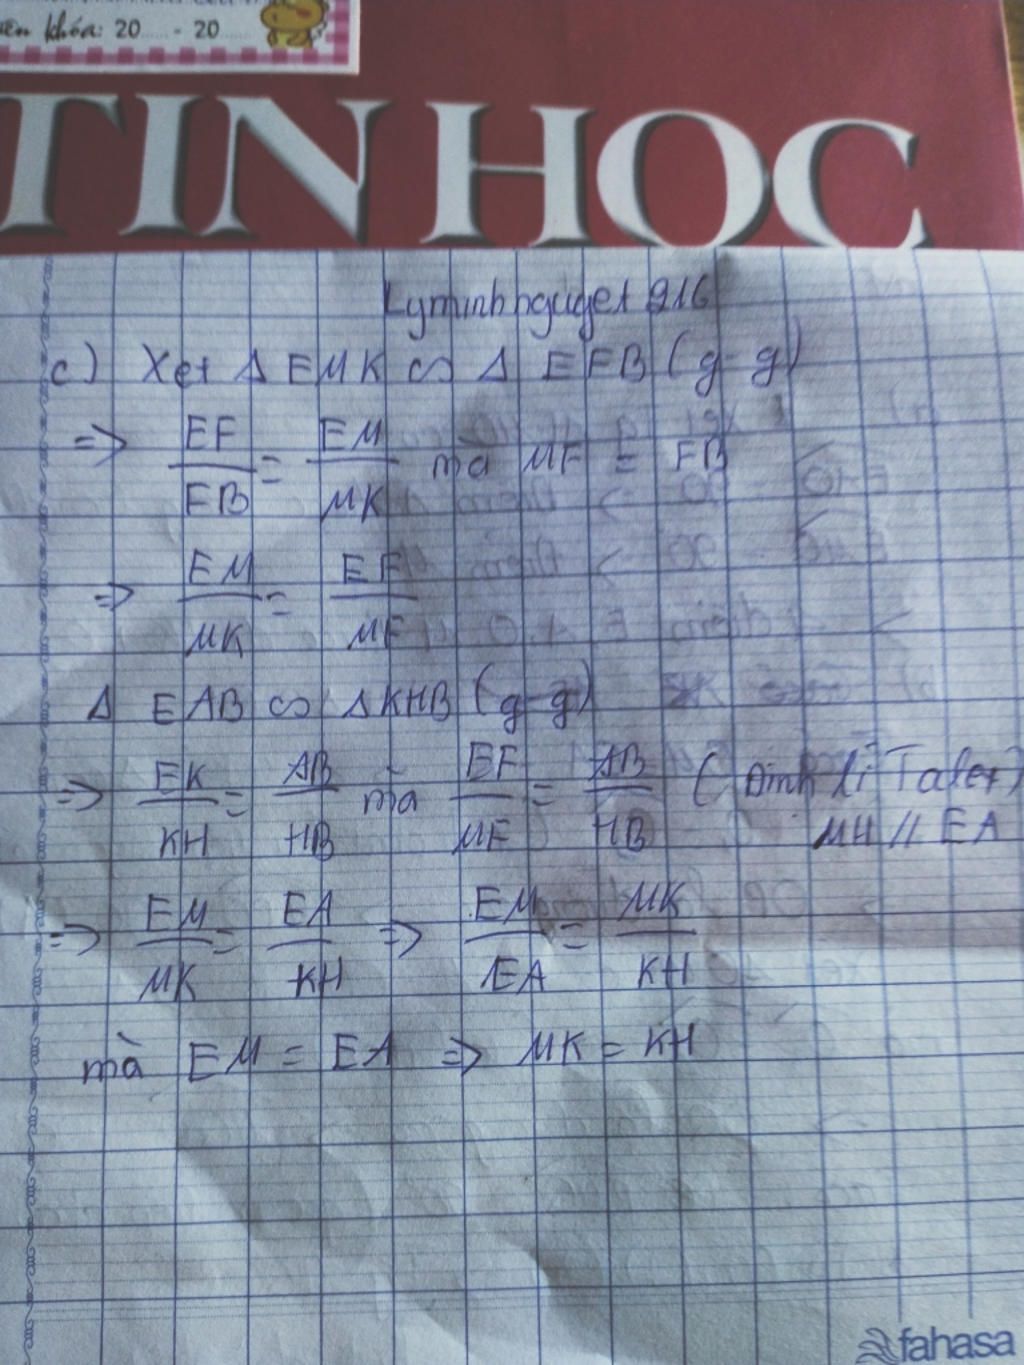 iên khóa: 20...... - 20......
TIN HỌC
Lyminhnguyet 916
c) Xét Δ EMK ∽ Δ EFB (g-g)
=> EF/FB = EM/MK mà MF = FB
=> EM/MK = EF/MF
Δ EAB ∽ ΔKHB (g-g)
=> EK/KH = AB/HB mà EF/MF = AB/HB (Định lí Talet)
MH // EA
=> EM/MK = EA/KH => EM/EA = MK/KH
mà EM = EA => MK = KH
fahasa